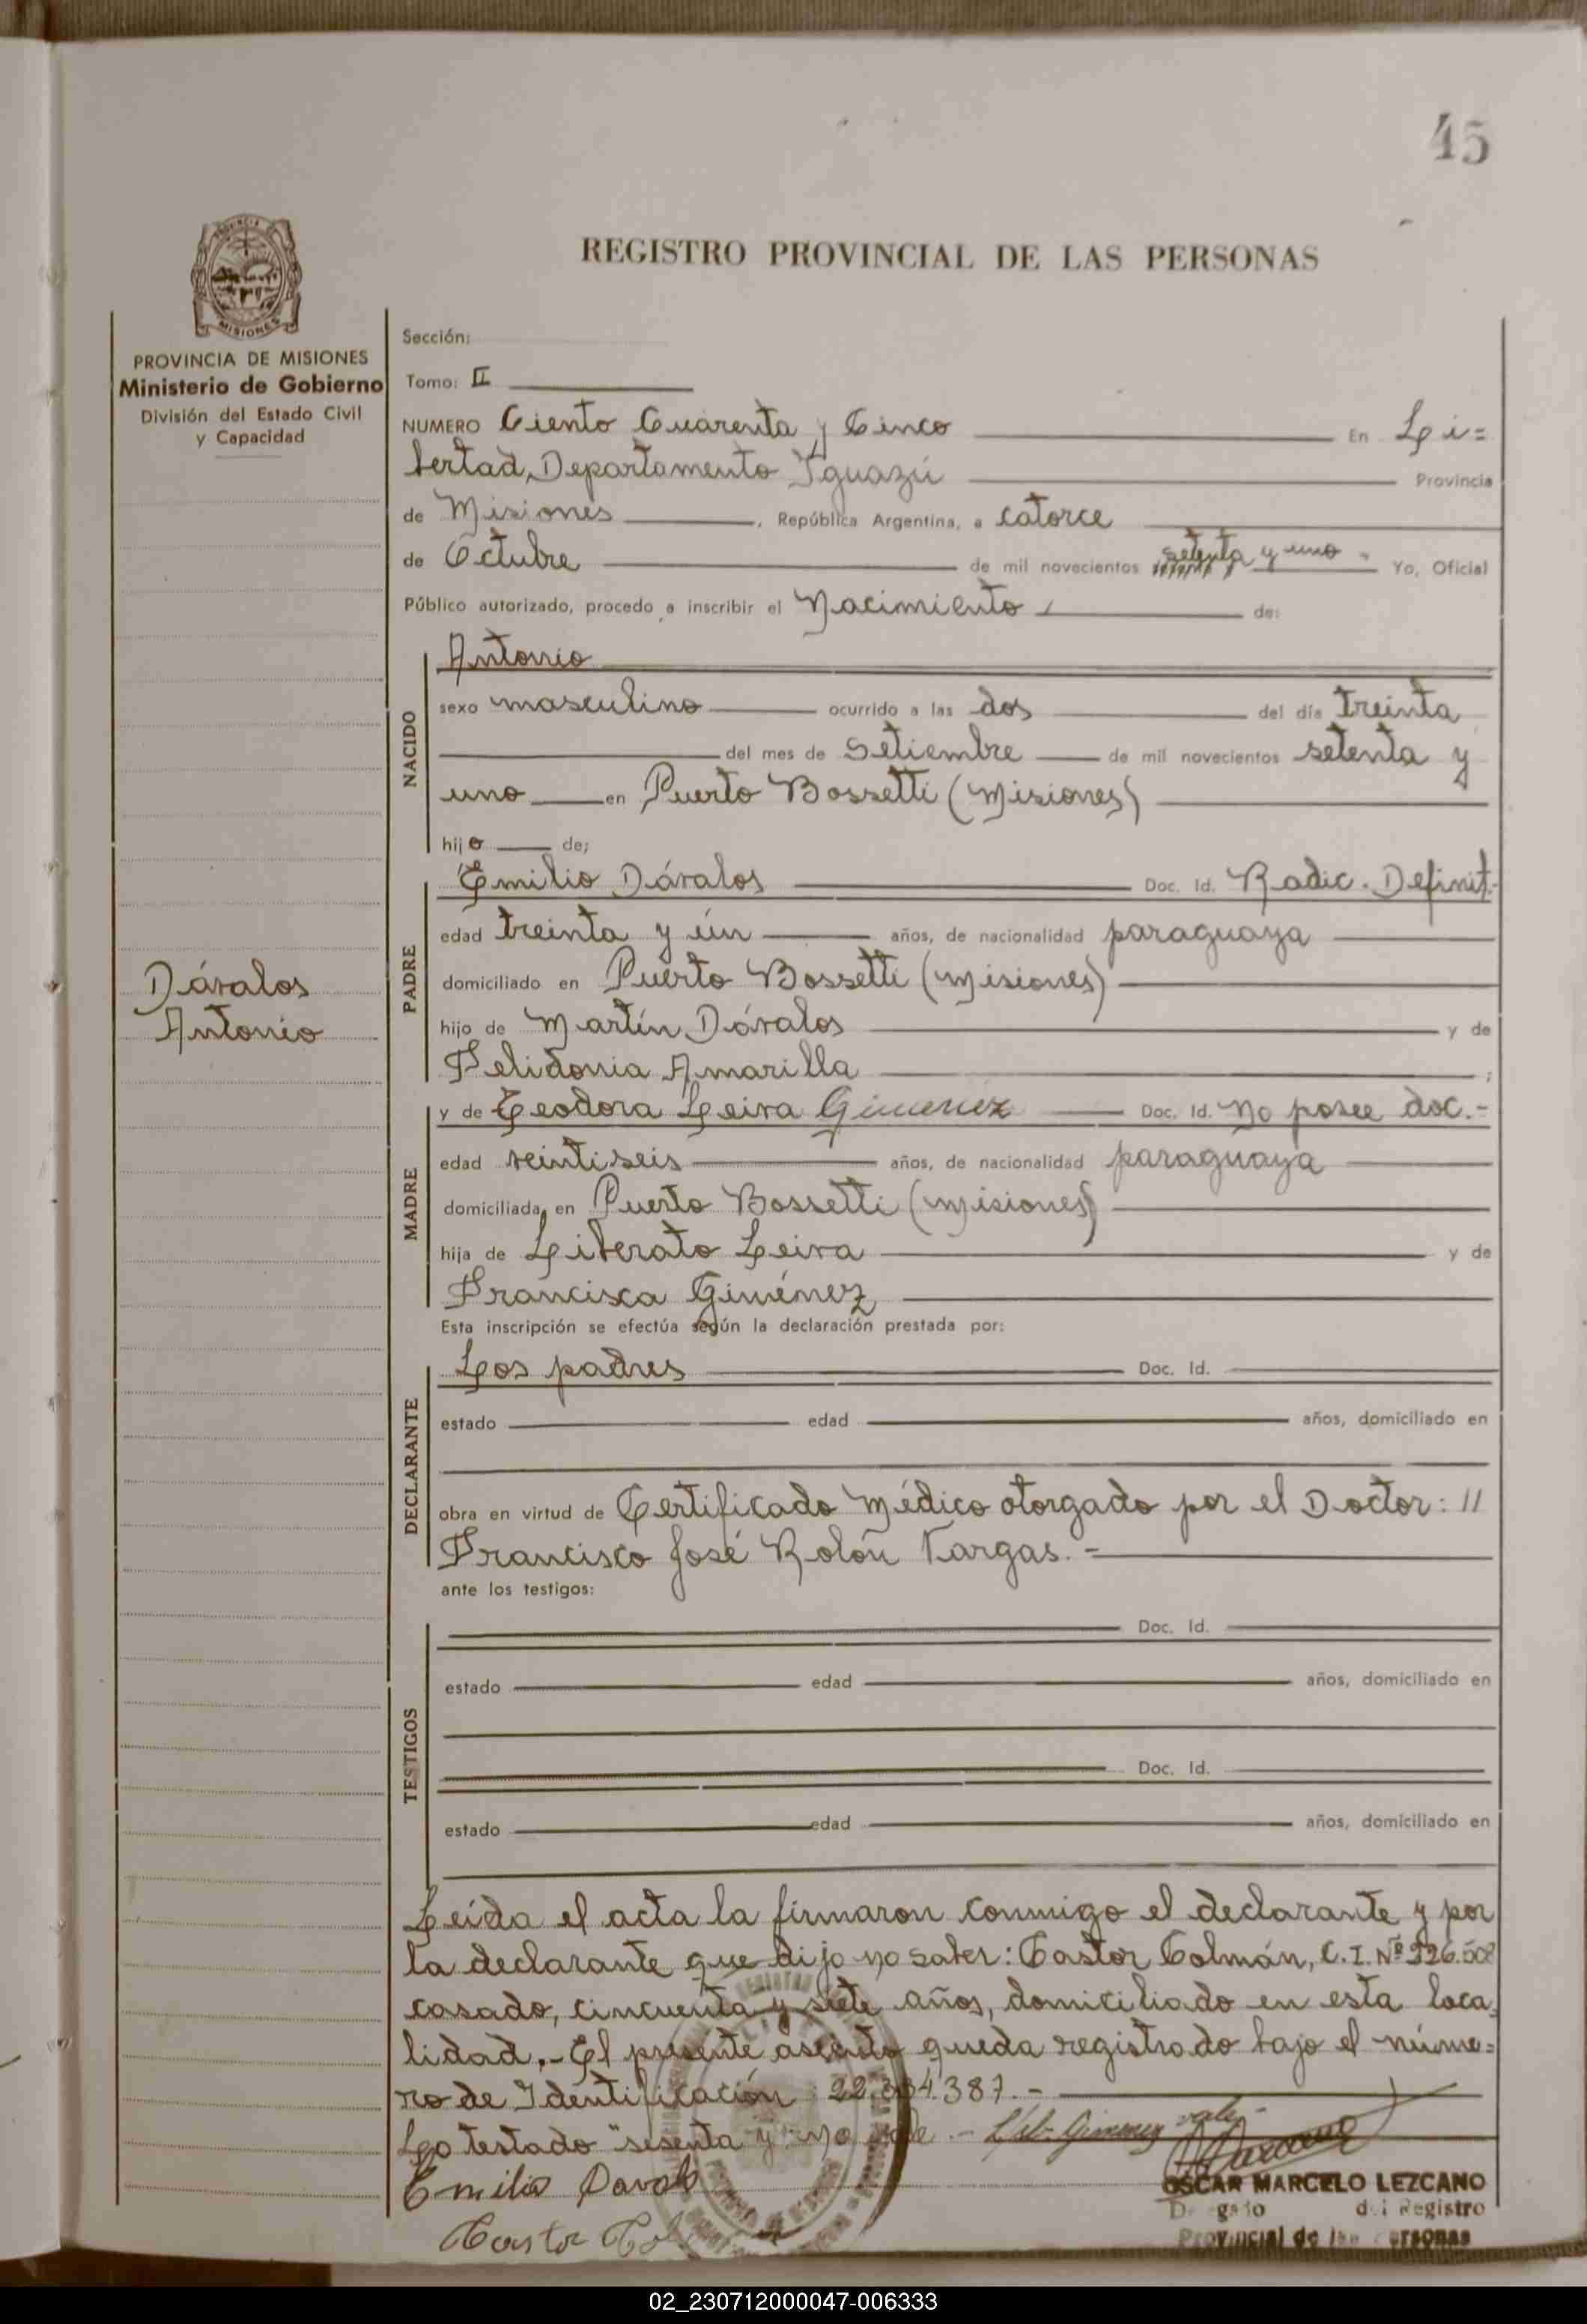 45
REGISTRO PROVINCIAL DE LAS PERSONAS
MISIONES
PROVINCIA DE MISIONES
Ministerio de Gobierno
División del Estado Civil
y Capacidad
Dávalos
Antonio
Sección:
Tomo: II
NUMERO Ciento Cuarenta y Cinco En Li=
bertad, Departamento Iguazú Provincia
de Misiones, República Argentina, a catorce
de Octubre de mil novecientos setenta y uno Yo, Oficial
Público autorizado, procedo a inscribir el Nacimiento de:
NACIDO
Antonio
sexo masculino ocurrido a las dos del día treinta
del mes de Setiembre de mil novecientos setenta y
uno en Puerto Bossetti (Misiones)
hijo de;
PADRE
Emilio Dávalos Doc. Id. Radic. Definit.-
edad treinta y ún años, de nacionalidad paraguaya
domiciliado en Puerto Bossetti (Misiones)
hijo de Martín Dávalos y de
Felidonia Amarilla ;
MADRE
y de Teodora Leiva Gimenez Doc. Id. No posee doc.-
edad veintiseis años, de nacionalidad paraguaya
domiciliada en Puerto Bossetti (Misiones)
hija de Liberato Leiva y de
Francisca Giménez
Esta inscripción se efectúa según la declaración prestada por:
DECLARANTE
Los padres Doc. Id.
estado edad años, domiciliado en
obra en virtud de Certificado Médico otorgado por el Doctor: //
Francisco José Rolón Vargas.-
ante los testigos:
TESTIGOS
Doc. Id.
estado edad años, domiciliado en
Doc. Id.
estado edad años, domiciliado en
Leída el acta la firmaron conmigo el declarante y por
la declarante que dijo no saber: Castor Colmán, C.I. Nº 226.508
casado, cincuenta y siete años, domiciliado en esta loca
lidad.- El presente asiento queda registrado bajo el núme=
ro de Identificación: 22.334.387.-
Lo testado "sesenta y no vale.- Gimenez vale-
Emilio Davalo
Castor
OSCAR MARCELO LEZCANO
del Registro
Provincial de las Personas
02_230712000047-006333